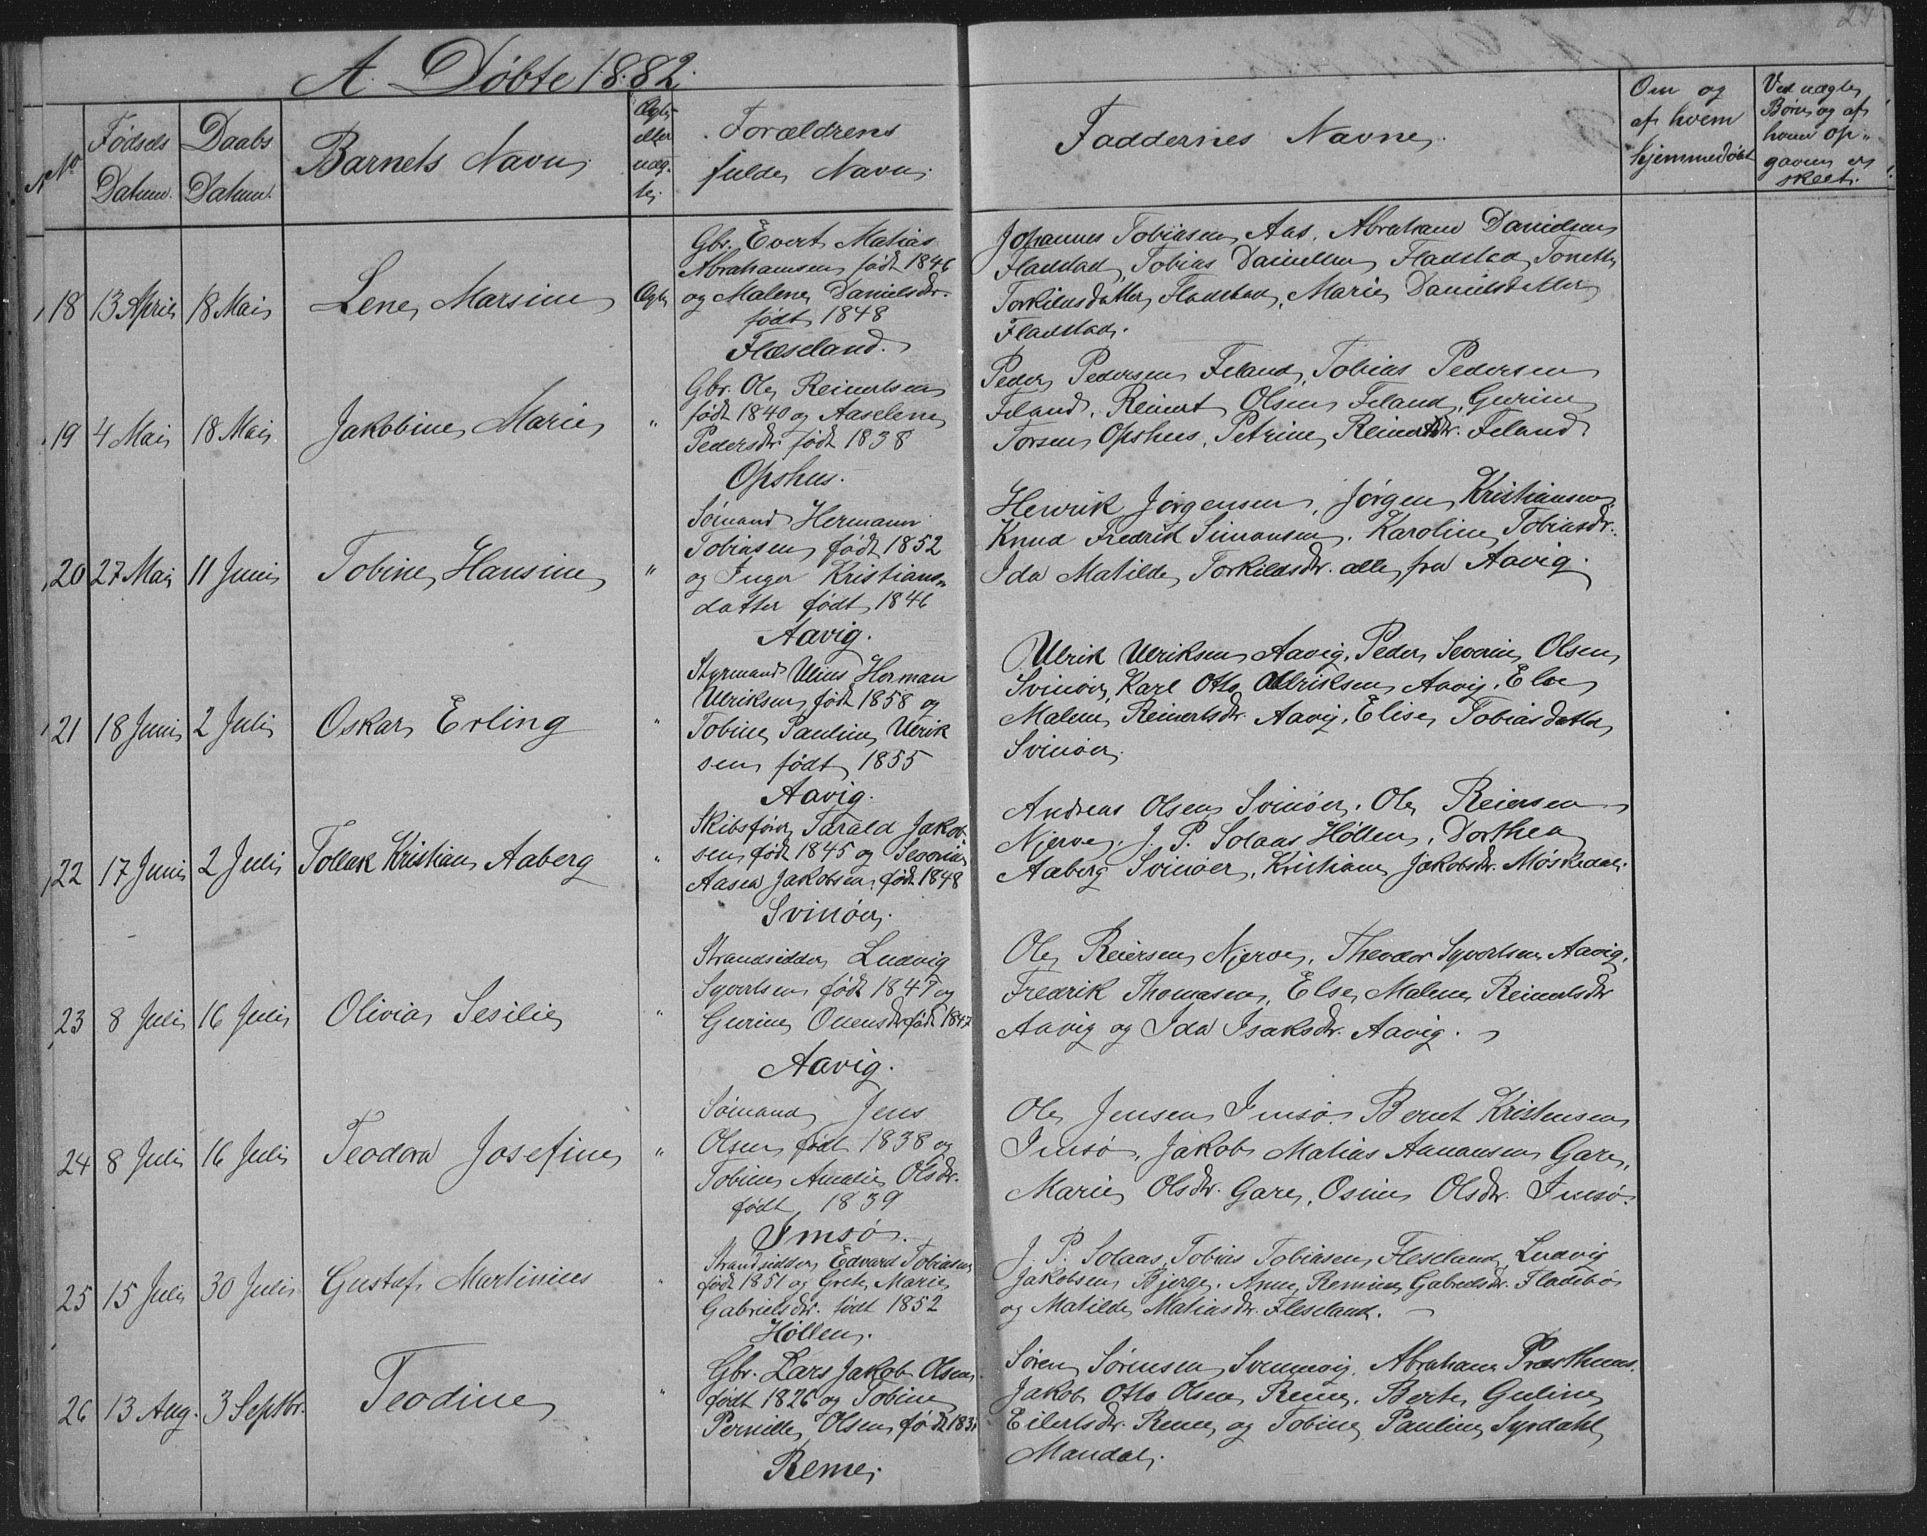 24
A. Døbte 1882.
No
Fødsels Datum.
Daabs Datum.
Barnets Navn.
Ægte eller uægte.
Forældrens fulde Navn.
Faddernes Navne.
Om og af hvem hjemmedøbt
Ved uægte Børn og af hvem opgaven er skeet.
18 13 April 18 Mai Lene Marsine Ægte
Gbr. Evert Matias
Abrahamsen født 1846
og Malene Danielsdr.
født 1848
Flæseland.
Johannes Tobiasen Aas, Abraham Danielsen
Fladstad, Tobias Danielsen Fladstad, Tonette
Torkildsdatter Fladstad, Marie Danielsdatter
Fladstad.
19 4 Mai 18 Mai Jakobine Marie "
Gbr. Ole Reinertsen
født 1840 og Aaselene
Pedersdr. født 1838
Opshus.
Peder Pedersen Feland, Tobias Pedersen
Feland, Reinert Olsen Feland, Gurine
Torsen Opshus, Petrine Reinertsdr. Feland
20 27 Mai 11 Juni Tobine Hansine "
Sømand Hermann
Tobiasen født 1852
og Inger Kristians-
datter født 1846
Aavig.
Henrik Jørgensen, Jørgen Kristiansen
Knud Fredrik Simonsen, Karoline Tobiasdr.
Ida Matilde Torkildsdr. alle fra Aavig.
21 18 Juni 2 Juli Oskar Erling "
Styrmand Ulius Herman
Ulriksen født 1858 og
Tobine Pauline Ulrik
sen født 1855
Aavig.
Ulrik Ulriksen Aavig, Peder Severin Olsen
Svinøer, Karl Otto Ulriksen Aavig, Else
Malene Reinertsdr. Aavig, Elise Tobiasdatter
Svinøer.
22 17 Juni 2 Juli Tollak Kristian Aaberg "
Skibsfører Tarald Jakob-
sen født 1845 og Severine
Aasea Jakobsen, født 1848
Svinøer.
Andreas Olsen Svinøer, Ole Reiersen
Njerve, J. P. Solaas Høllen, Dorthea
Aaberg Svinøer, Kristiane Jakobsdr. Møskedal.
23 8 Juli 16 Juli Olivia Sesilie "
Strandsidder Ludvig
Syvertsen født 1847 og
Gurine Ouensdr født 1842
Aavig.
Ole Reiersen Njerve, Theodor Syvertsen Aavig,
Fredrik Thomasen, Else Malene Reinertsdr
Aavig og Ida Isaksdr. Aavig.
24 8 Juli 16 Juli Teodora Josefine "
Sømand Jens
Olsen født 1838 og
Tobine Amalie Olsdr.
født 1839
Imsø.
Ole Jensen Imsø, Bernt Kristensen
Imsø, Jakob Matias Aamansen Gare,
Marie Olsdr. Gare, Osine Olsdr. Imsø.
25 15 Juli 30 Juli Gustaf Martinius "
Strandsidder Edvard Tobiasen
født 1851 og Grete Marie
Gabrielsdr. født 1852
Høllen.
J. P. Solaas, Tobias Tobiasen Fleseland, Ludvig
Jakobsen Bjerge, Anne Remine Gabrielsdr. Fladebø
og Matilde Matiasdr. Fleseland.
26 13 Aug. 3 Septbr. Teodine "
Gbr. Lars Jakob Olsen
født 1826 og Tobine
Pernille Olsen født 183
Reme.
Søren Sørensen Svennevig, Abraham Præsthuus.
Jakob Otto Olsen Reme, Berte Guline
Eilertsdr. Reme og Tobine Pauline Syrdahl
Mandal.